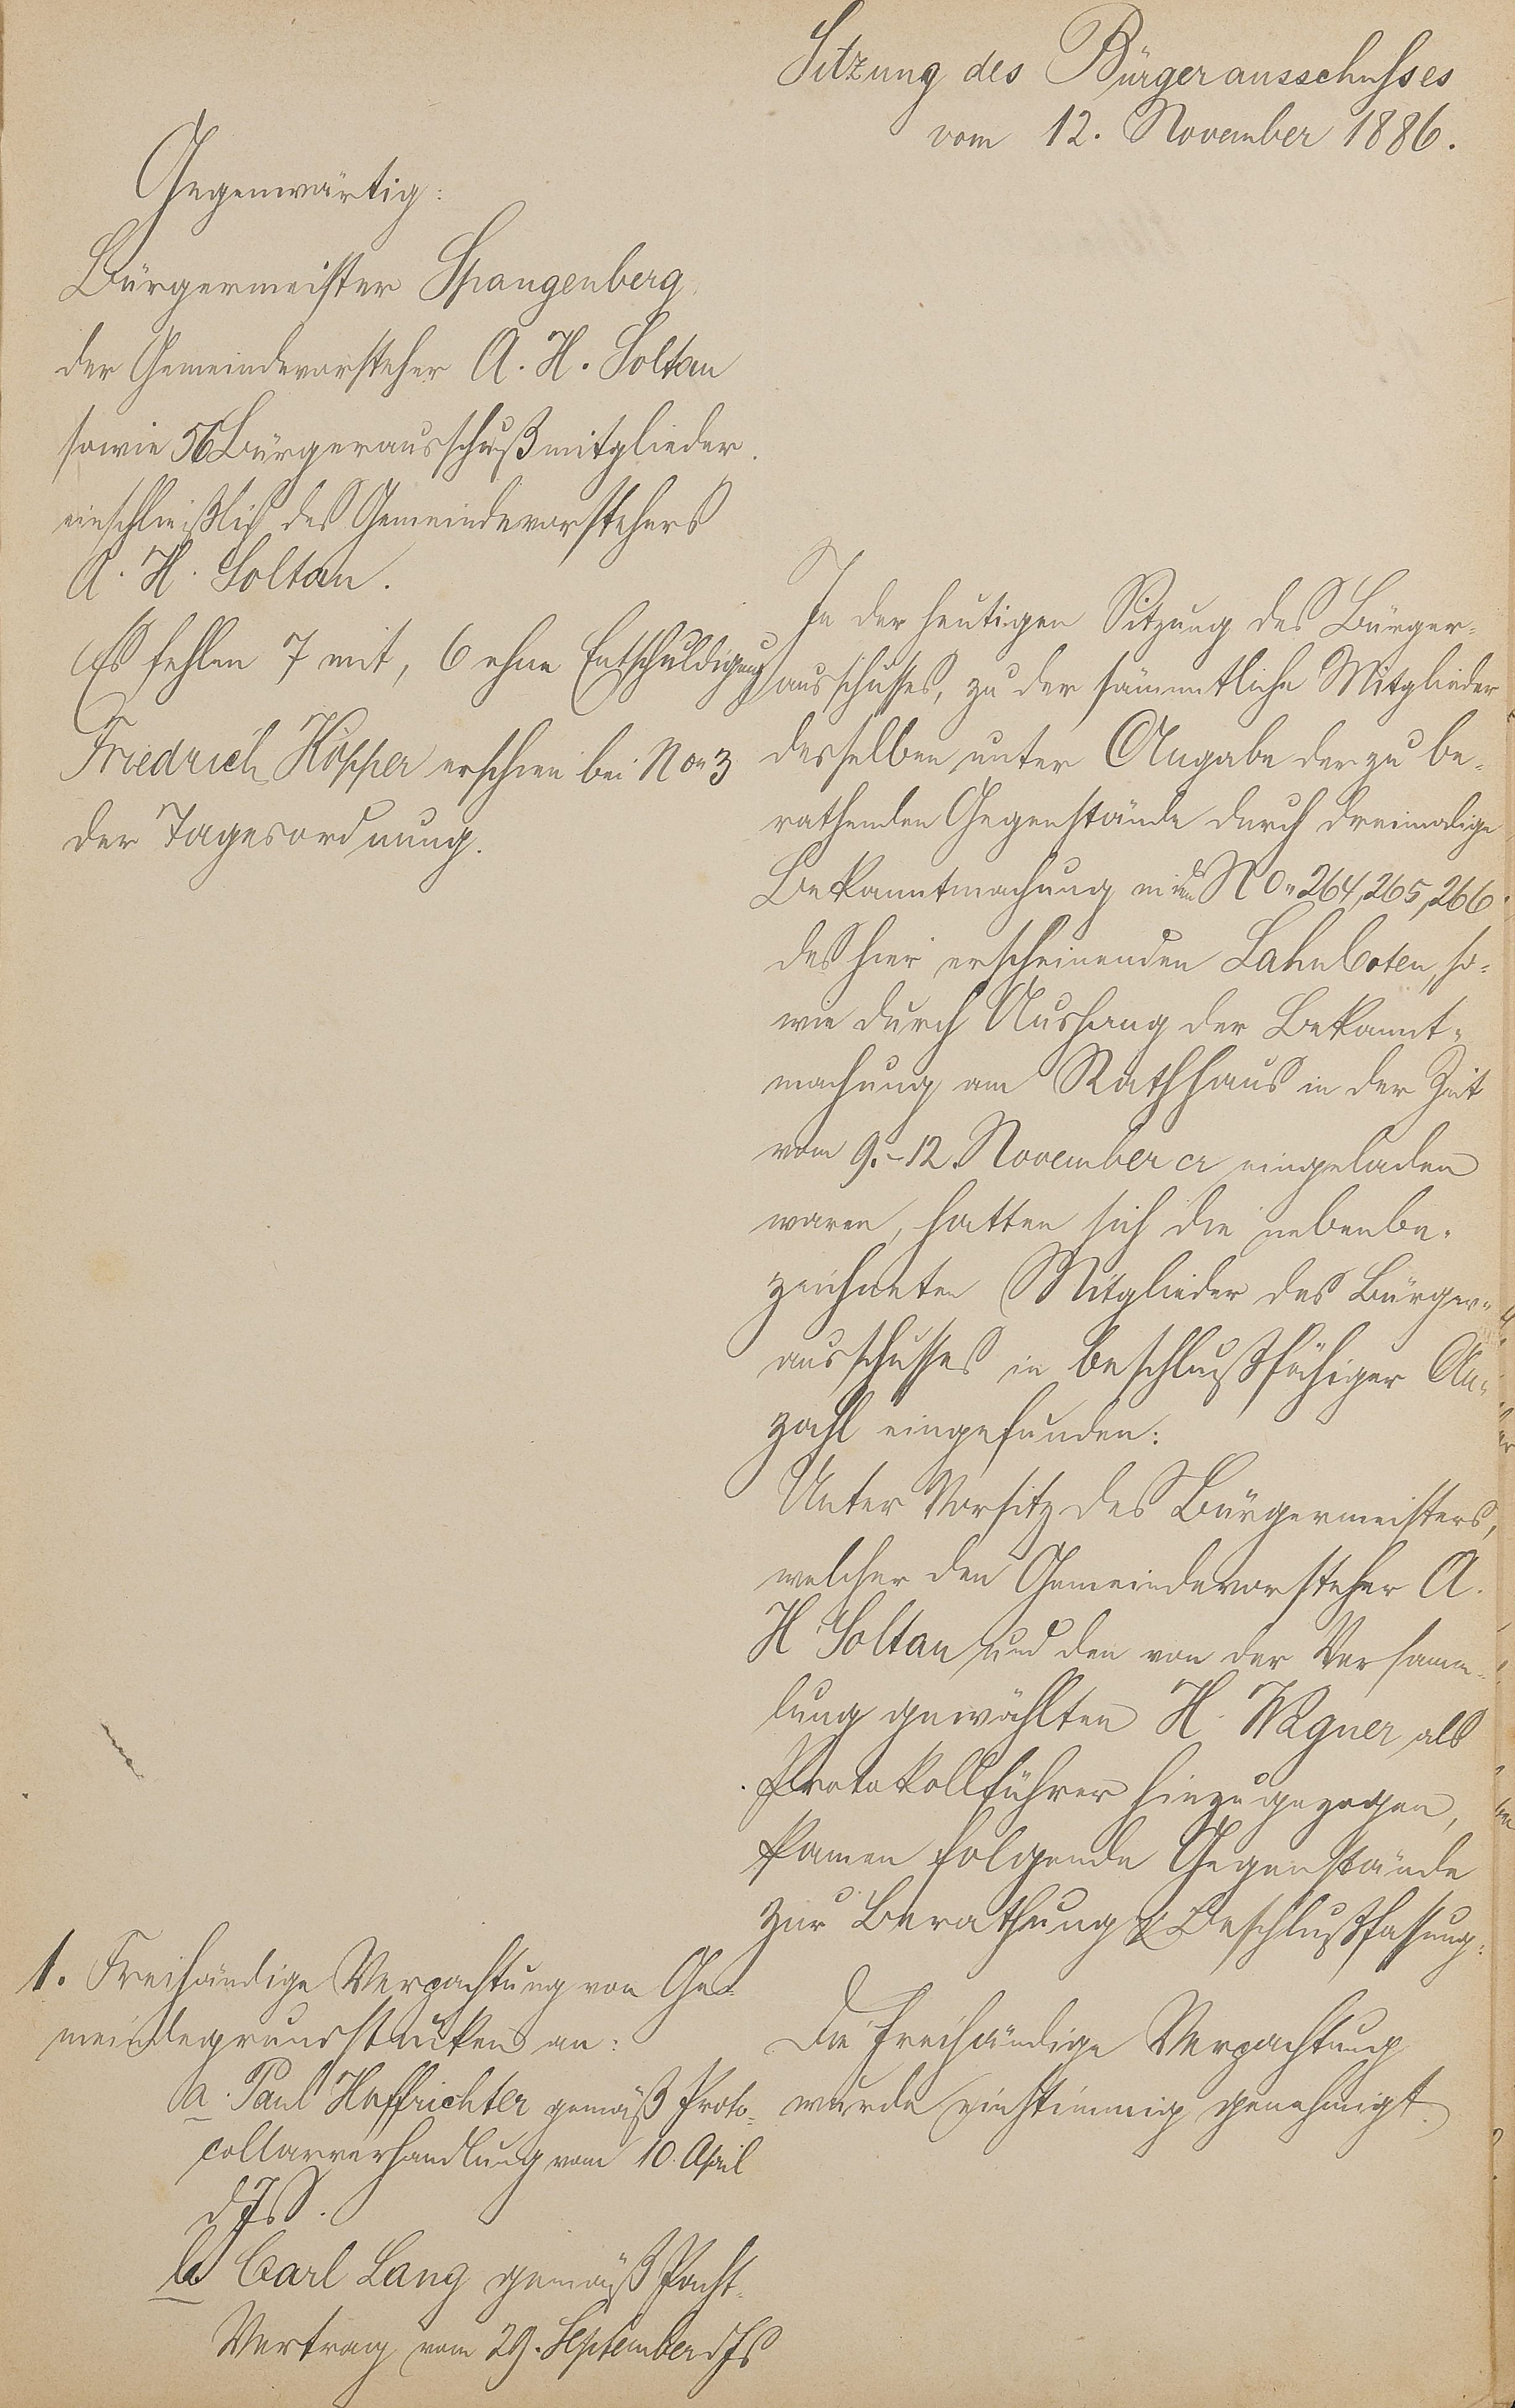 Sitzung des Bürgerausschusses
vom 12. November 1886.
Gegenwärtig:
Bürgermeister Spangenberg
der Gemeindevorsteher A. H. Soltau
sowie 56 Bürgerausschußmitglieder.
einschließlich des Gemeindevorstehers
A. H. Soltau.
Es fehlen 7 mit, 6 ohne Entschuldigung
Friedrich Höpper erschien bei No 3
der Tagesordnung.
In der heutigen Sitzung des Bürger-
ausschusses, zu der sämmtliche Mitglieder
desselben unter Angabe der zu be-
rathenden Gegenstände durch dreimalige
Bekanntmachung in den No 264, 265, 266
des hier erscheinenden Lahnboten, so-
wie durch Aushang der Bekannt-
machung am Rathhaus in der Zeit
vom 9.-12. November cr eingeladen
waren, hatten sich die nebenbe-
zeichneten Mitglieder des Bürger-
ausschusses in beschlußfähiger An-
zahl eingefunden:
Unter Vorsitz des Bürgermeisters,
welcher den Gemeindevorsteher A.
H Soltau und den von der Versamm-
lung gewählten H. Wagner als
Protokollführer hinzugezogen,
kamen folgende Gegenstände
zur Berathung & Beschlußfassung:
1. Freihändige Verpachtung von Ge-
meindegrundstücken an:
a. Paul Haffrichter gemäß Proto-
collarverhandlung vom 10. April
d Js.
b Carl Lang gemäß Pacht-
Vertrag vom 29. September d Js
Die freihändige Verpachtung
wurde einstimmig genehmigt.